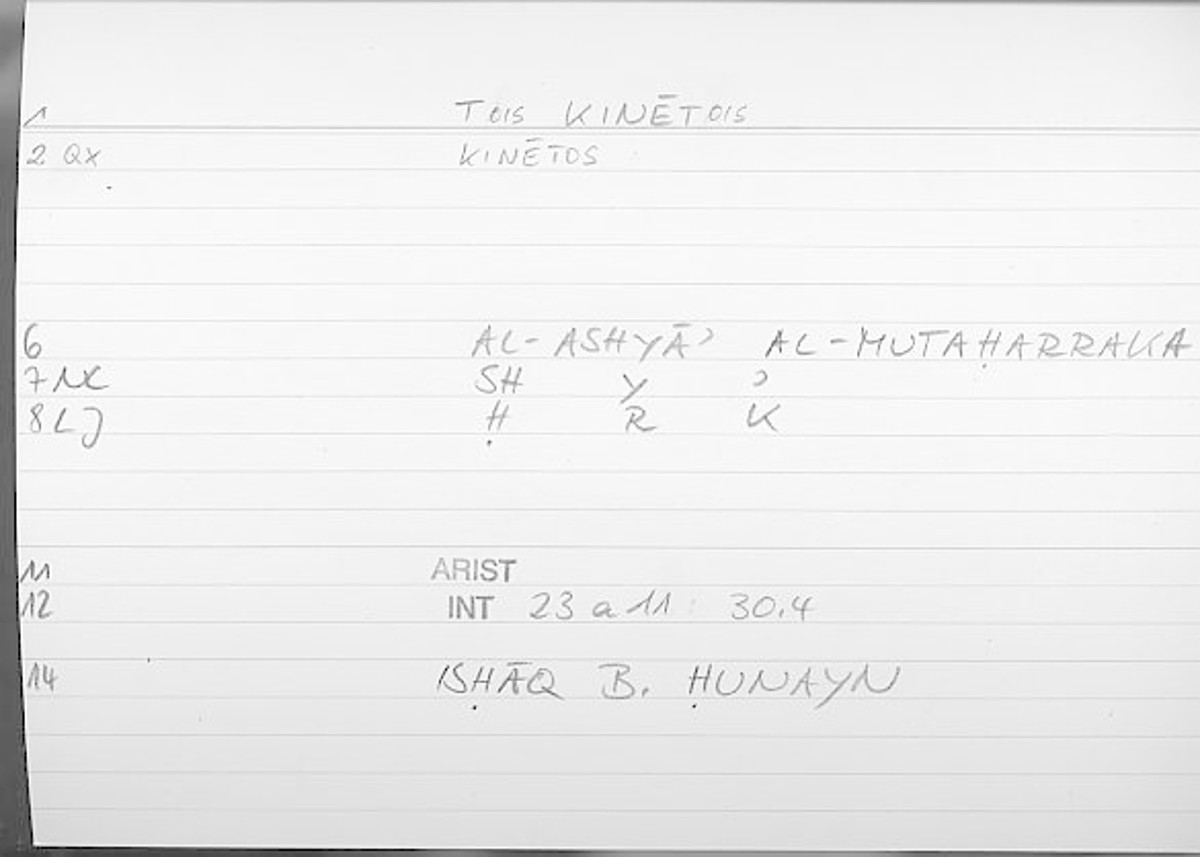 1 TOIS KINĒTOIS
2 QX KINĒTOS
6 AL-ASHYĀʾ AL-MUTAḤARRAKA
7 NC SH Y ʾ
8 LJ Ḥ R K
11 ARIST
12 INT 23 a 11 30.4
14 ISḤĀQ B. ḤUNAYN